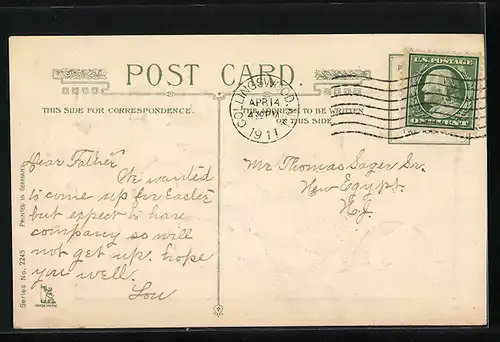 POST CARD
THIS SIDE FOR CORRESPONDENCE.
ADDRESS TO BE WRITTEN
ON THIS SIDE
COLLINGSW
APR 14
4 30 PM
1911
U.S. POSTAGE
ONE CENT
Dear Father
We wanted
to come up for Easter
but expect to have
company so will
not get up. hope
you well.
Lou
Mr Thomas Sager Sr.
New Egypt
N.J.
PRINTED IN GERMANY
Series No. 2245